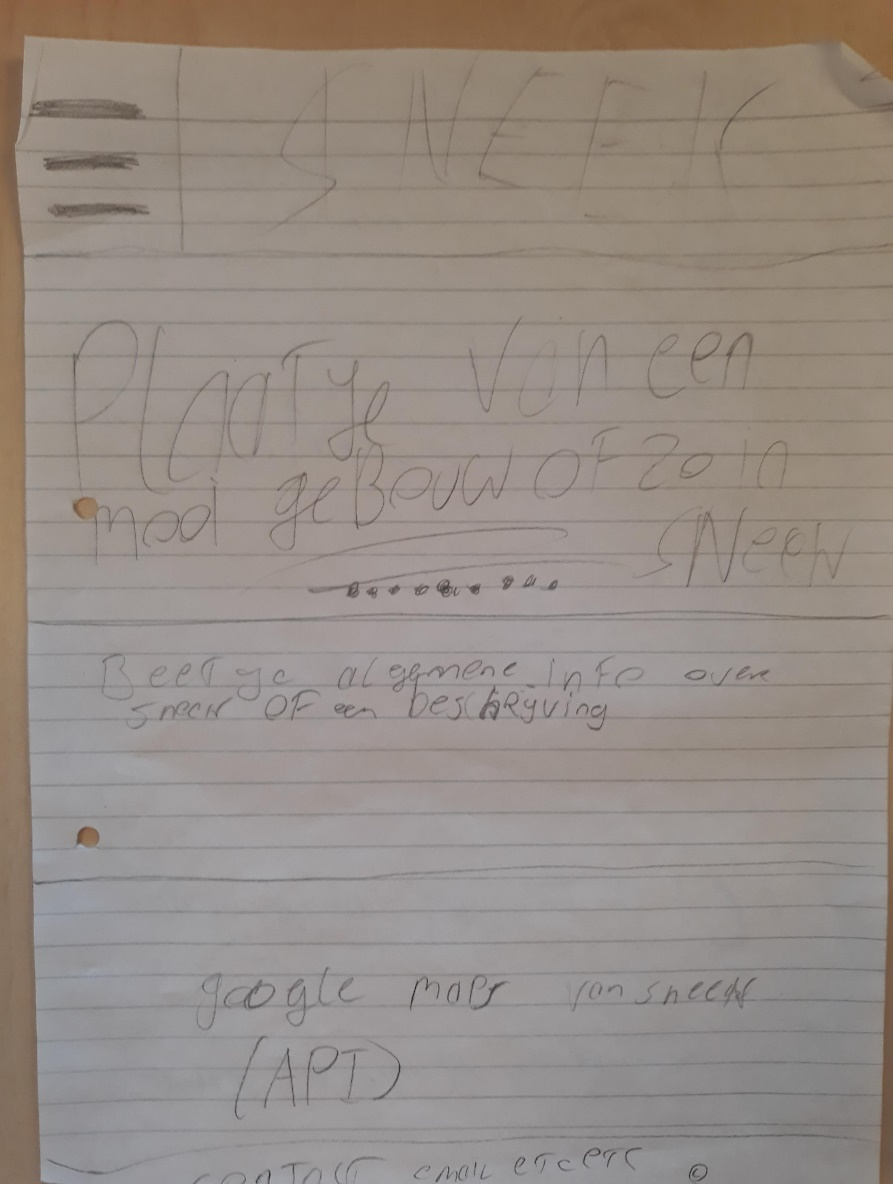 SNEEK
Plaatje van een
mooi geBouw OF zo in
SNeek
Beetje algemene info over
sneek OF een beschrijving
google maps van sneek
(API)
contact email etc etc ©